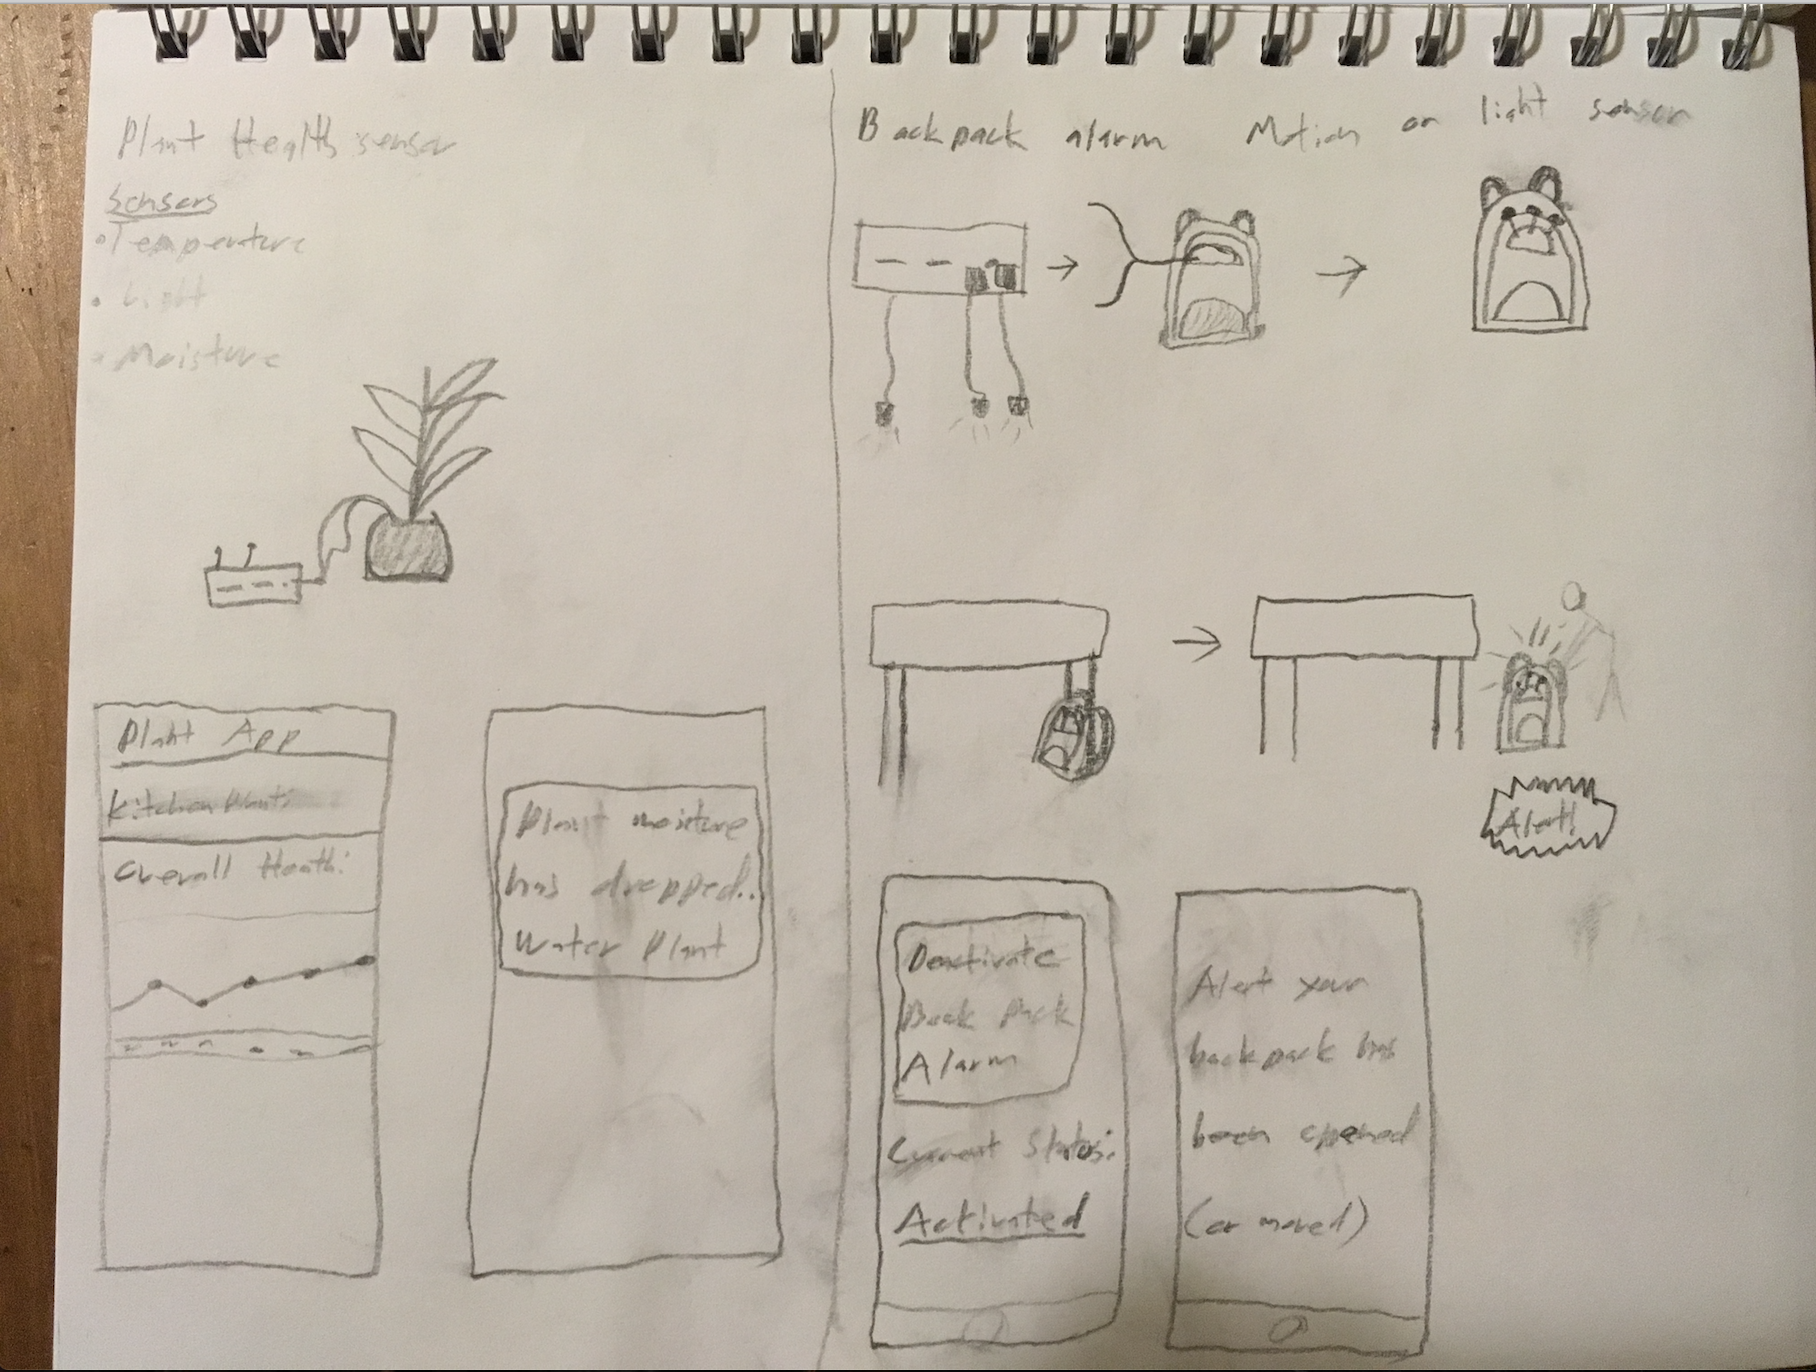 Plant Health sensor
Sensors
• Temperature
• Light
• Moisture
Plant App
Kitchen Plant:
Overall Heath:
Plant moisture
has dropped..
Water Plant
Backpack alarm Motion or light sensor
Alert!
Deactivate
Back Pack
Alarm
Current Status:
Activated
Alert your
backpack has
been opened
(or moved)